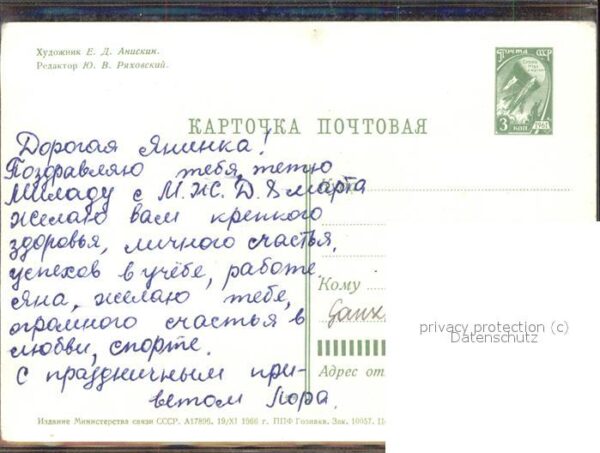 Художник Е. Д. Анискин.
Редактор Ю. В. Ряховский.
ПОЧТА СССР
3 коп. 1961
КАРТОЧКА ПОЧТОВАЯ
Дорогая Янинка!
Поздравляю тебя, тетю
Миладу с М.Ж.Д. 8 марта
желаю вам крепкого
здоровья, личного счастья,
успехов в учёбе, работе.
Яна, желаю тебе,
огромного счастья в
любви, спорте.
С праздничным при-
ветом Лора.
Кому
Адрес от
privacy protection (c)
Datenschutz
Издание Министерства связи СССР. А17895. 19/XI 1966 г. ППФ Гознака. Зак. 10057.